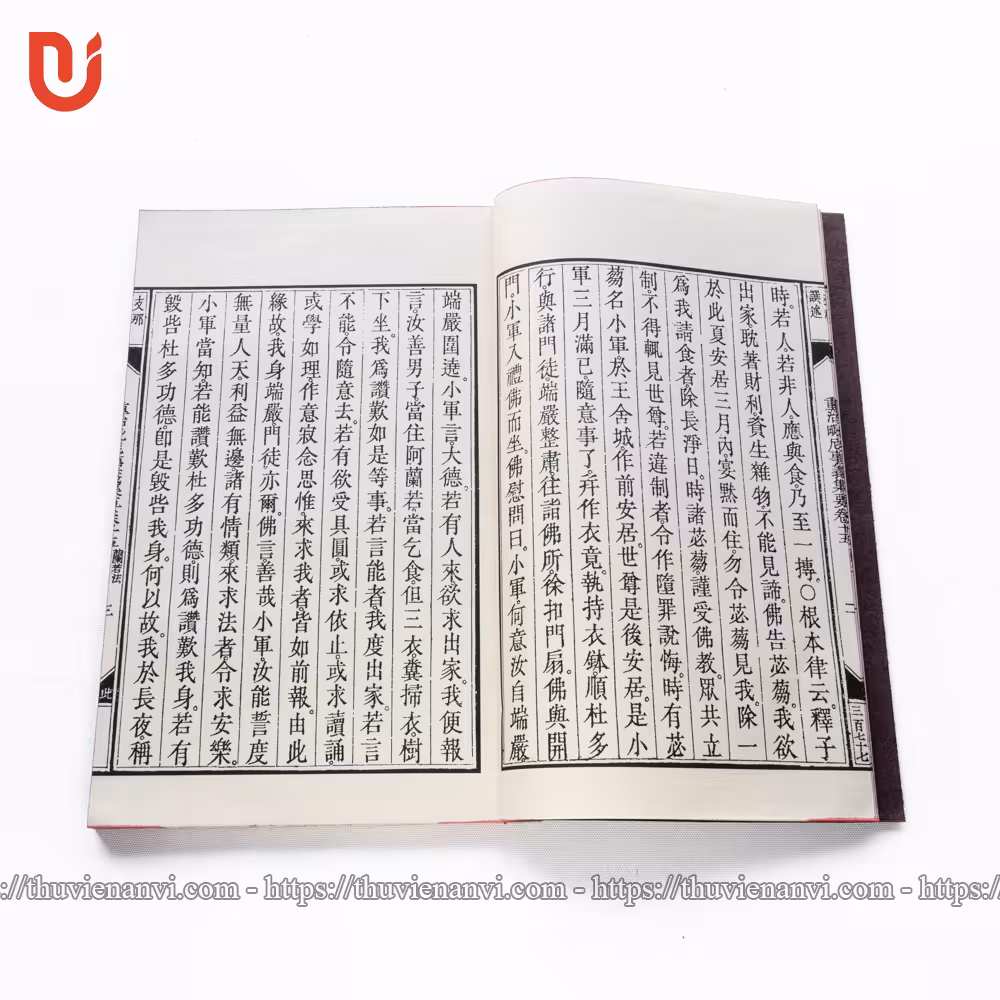 譔述
重治毗尼事義集要卷十三
二
三百七十七
時。若人。若非人。應與食。乃至一摶。○根本律云。釋子
出家。耽著財利。資生雜物。不能見諦。佛告苾芻。我欲
於此夏安居三月內。宴黙而住。勿令苾芻見我。除一
爲我請食者。除長淨日。時諸苾芻謹受佛教。眾共立
制。不得輒見世尊。若違制者。令作墮罪說悔。時有苾
芻名小軍。於王舍城。作前安居。世尊是後安居。是小
軍三月滿已。隨意事了。幷作衣竟。執持衣鉢。順杜多
行。與諸門徒。端嚴整肅。往詣佛所。徐扣門扇。佛與開
門。小軍入禮佛而坐。佛慰問曰。小軍。何意汝自端嚴。
端嚴圍遶。小軍言。大德。若有人來。欲求出家。我便報
言。汝善男子。當往阿蘭若。當乞食。但三衣。糞掃衣。樹
下坐。我爲讚歎如是等事。若言能者。我度出家。若言
不能。令隨意去。若有欲受具圓。或求依止。或求讀誦。
或學如理作意。寂念思惟。來求我者。皆如前報。由此
緣故。我身端嚴。門徒亦爾。佛言。善哉小軍。汝能誓度
無量人天。利益無邊諸有情類。來求法者。令求安樂。
小軍當知。若能讚歎杜多功德。則爲讚歎我身。若有
毀呰杜多功德。卽是毀呰我身。何以故。我於長夜。稱
支那
蘭若法
三
此
https://thuvienanvi.com - https://thuvienanvi.com - https://thuvienanvi.com - https://